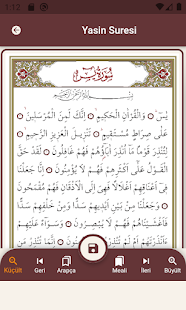 1:12
Yasin Suresi
سُورَةُ يٰسٓ
بِسْمِ اللّٰهِ الرَّحْمٰنِ الرَّحِيمِ
يٰسٓ ۝ وَالْقُرْاٰنِ الْحَكِيمِ ۝ اِنَّكَ لَمِنَ الْمُرْسَلِينَ ۝
عَلٰى صِرَاطٍ مُسْتَقِيمٍ ۝ تَنْزِيلَ الْعَزِيزِ الرَّحِيمِ ۝
لِتُنْذِرَ قَوْمًا مَٓا اُنْذِرَ اٰبَٓاؤُ۬هُمْ فَهُمْ غَافِلُونَ ۝ لَقَدْ
حَقَّ الْقَوْلُ عَلٰٓى اَكْثَرِهِمْ فَهُمْ لَا يُؤْمِنُونَ ۝ اِنَّا جَعَلْنَا
فِٓي اَعْنَاقِهِمْ اَغْلَالًا فَهِيَ اِلَى الْاَذْقَانِ فَهُمْ
مُقْمَحُونَ ۝ وَجَعَلْنَا مِنْ بَيْنِ اَيْدِيهِمْ سَدًّا وَمِنْ خَلْفِهِمْ سَدًّا
فَاَغْشَيْنَاهُمْ فَهُمْ لَا يُبْصِرُونَ ۝ وَسَوَٓاءٌ عَلَيْهِمْ
Küçült Geri Arapça Meali İleri Büyült